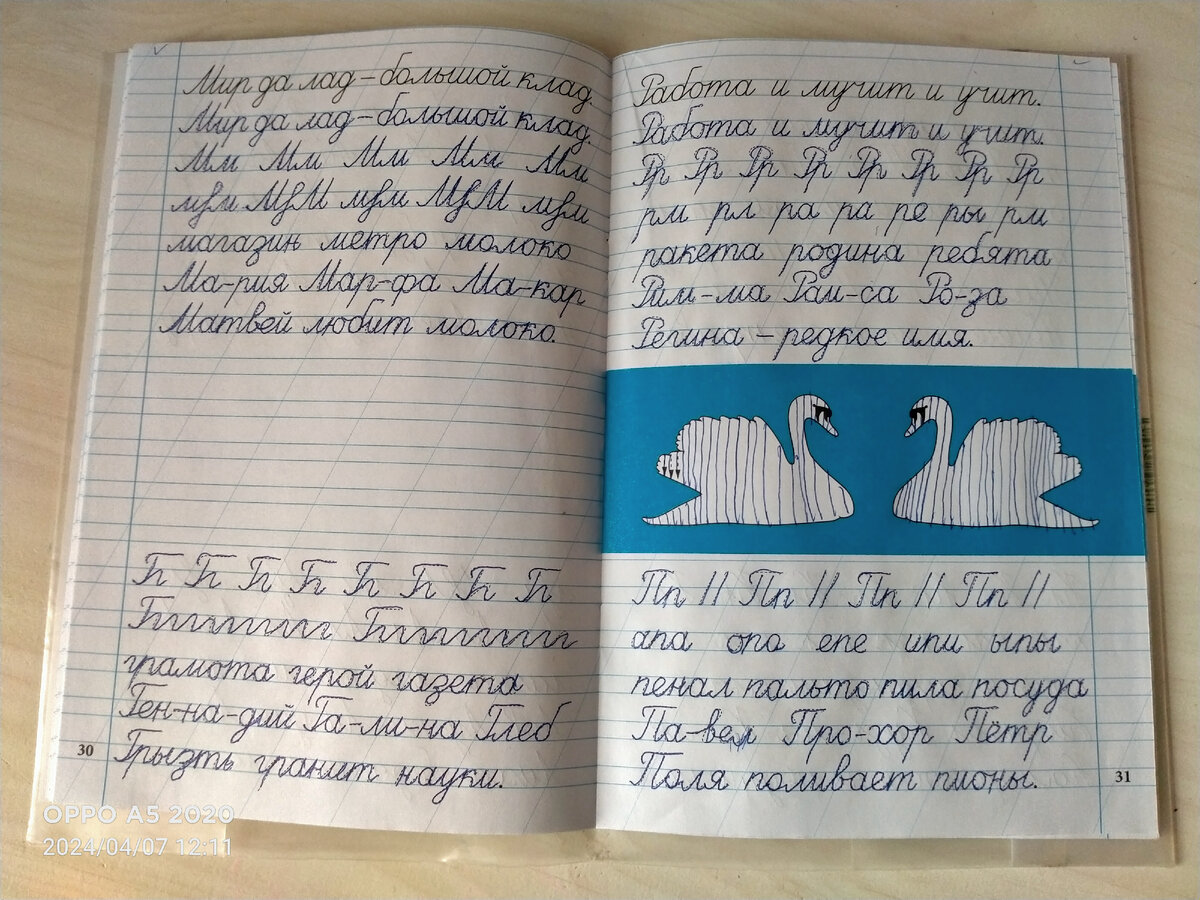 Мир да лад – большой клад.
Мир да лад – большой клад.
Мм Мм Мм Мм Мм
мум МуМ мум МуМ мум
магазин метро молоко
Ма-рия Мар-фа Ма-кар
Матвей любит молоко.
Г Г Г Г Г Г Г Г
Ггггггг Гггггггг
грамота герой газета
Ген-на-дий Га-ли-на Глеб
Грызть гранит науки.
30
Работа и мучит и учит.
Работа и мучит и учит.
Рр Рр Рр Рр Рр Рр Рр Рр
рм рл ра ра ре ры рм
ракета родина ребята
Рим-ма Раи-са Ро-за
Регина – редкое имя.
Пп // Пп // Пп // Пп //
апа опо епе ипи ыпы
пенал пальто пила посуда
Па-вел Про-хор Пётр
Поля поливает пионы.
31
OPPO A5 2020
2024/04/07 12:11